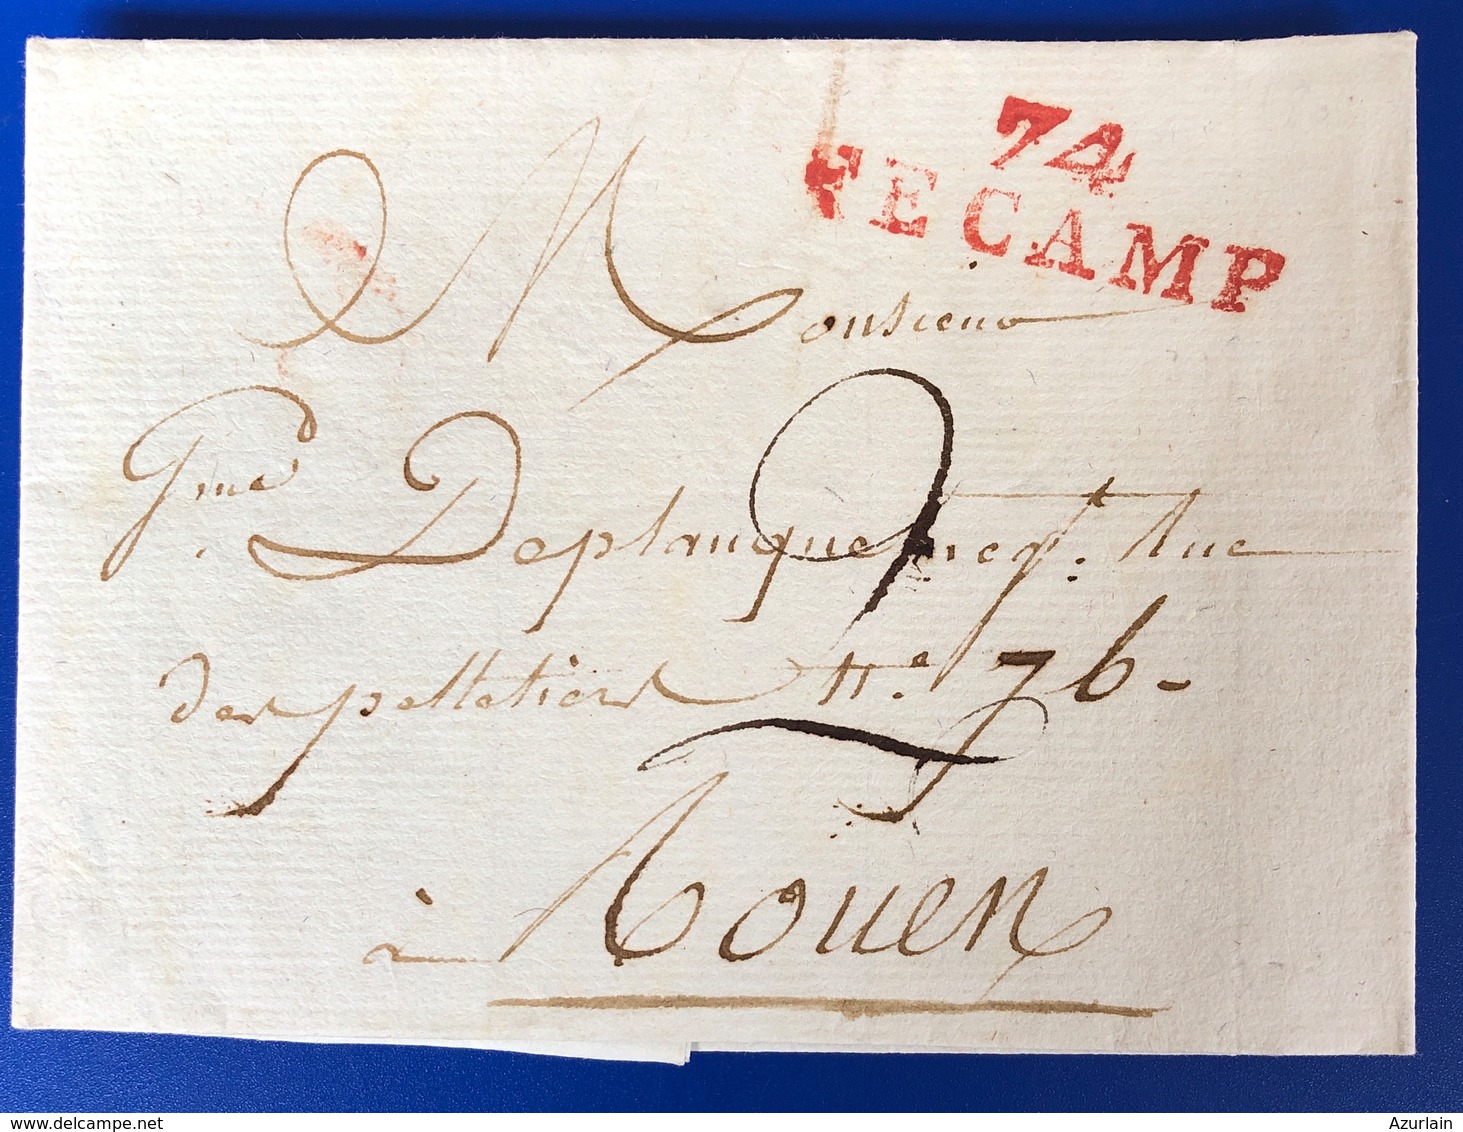 74
FECAMP
Monsieur
Gme Deplanque neg.t Rue
des pelletiers N.e 76-
2
à Rouen
www.delcampe.net
Azurlain